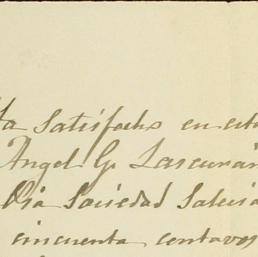 ta satisfecho en esta
Angel G. Lascurain
Dia Sociedad Salesia
cincuenta centavos